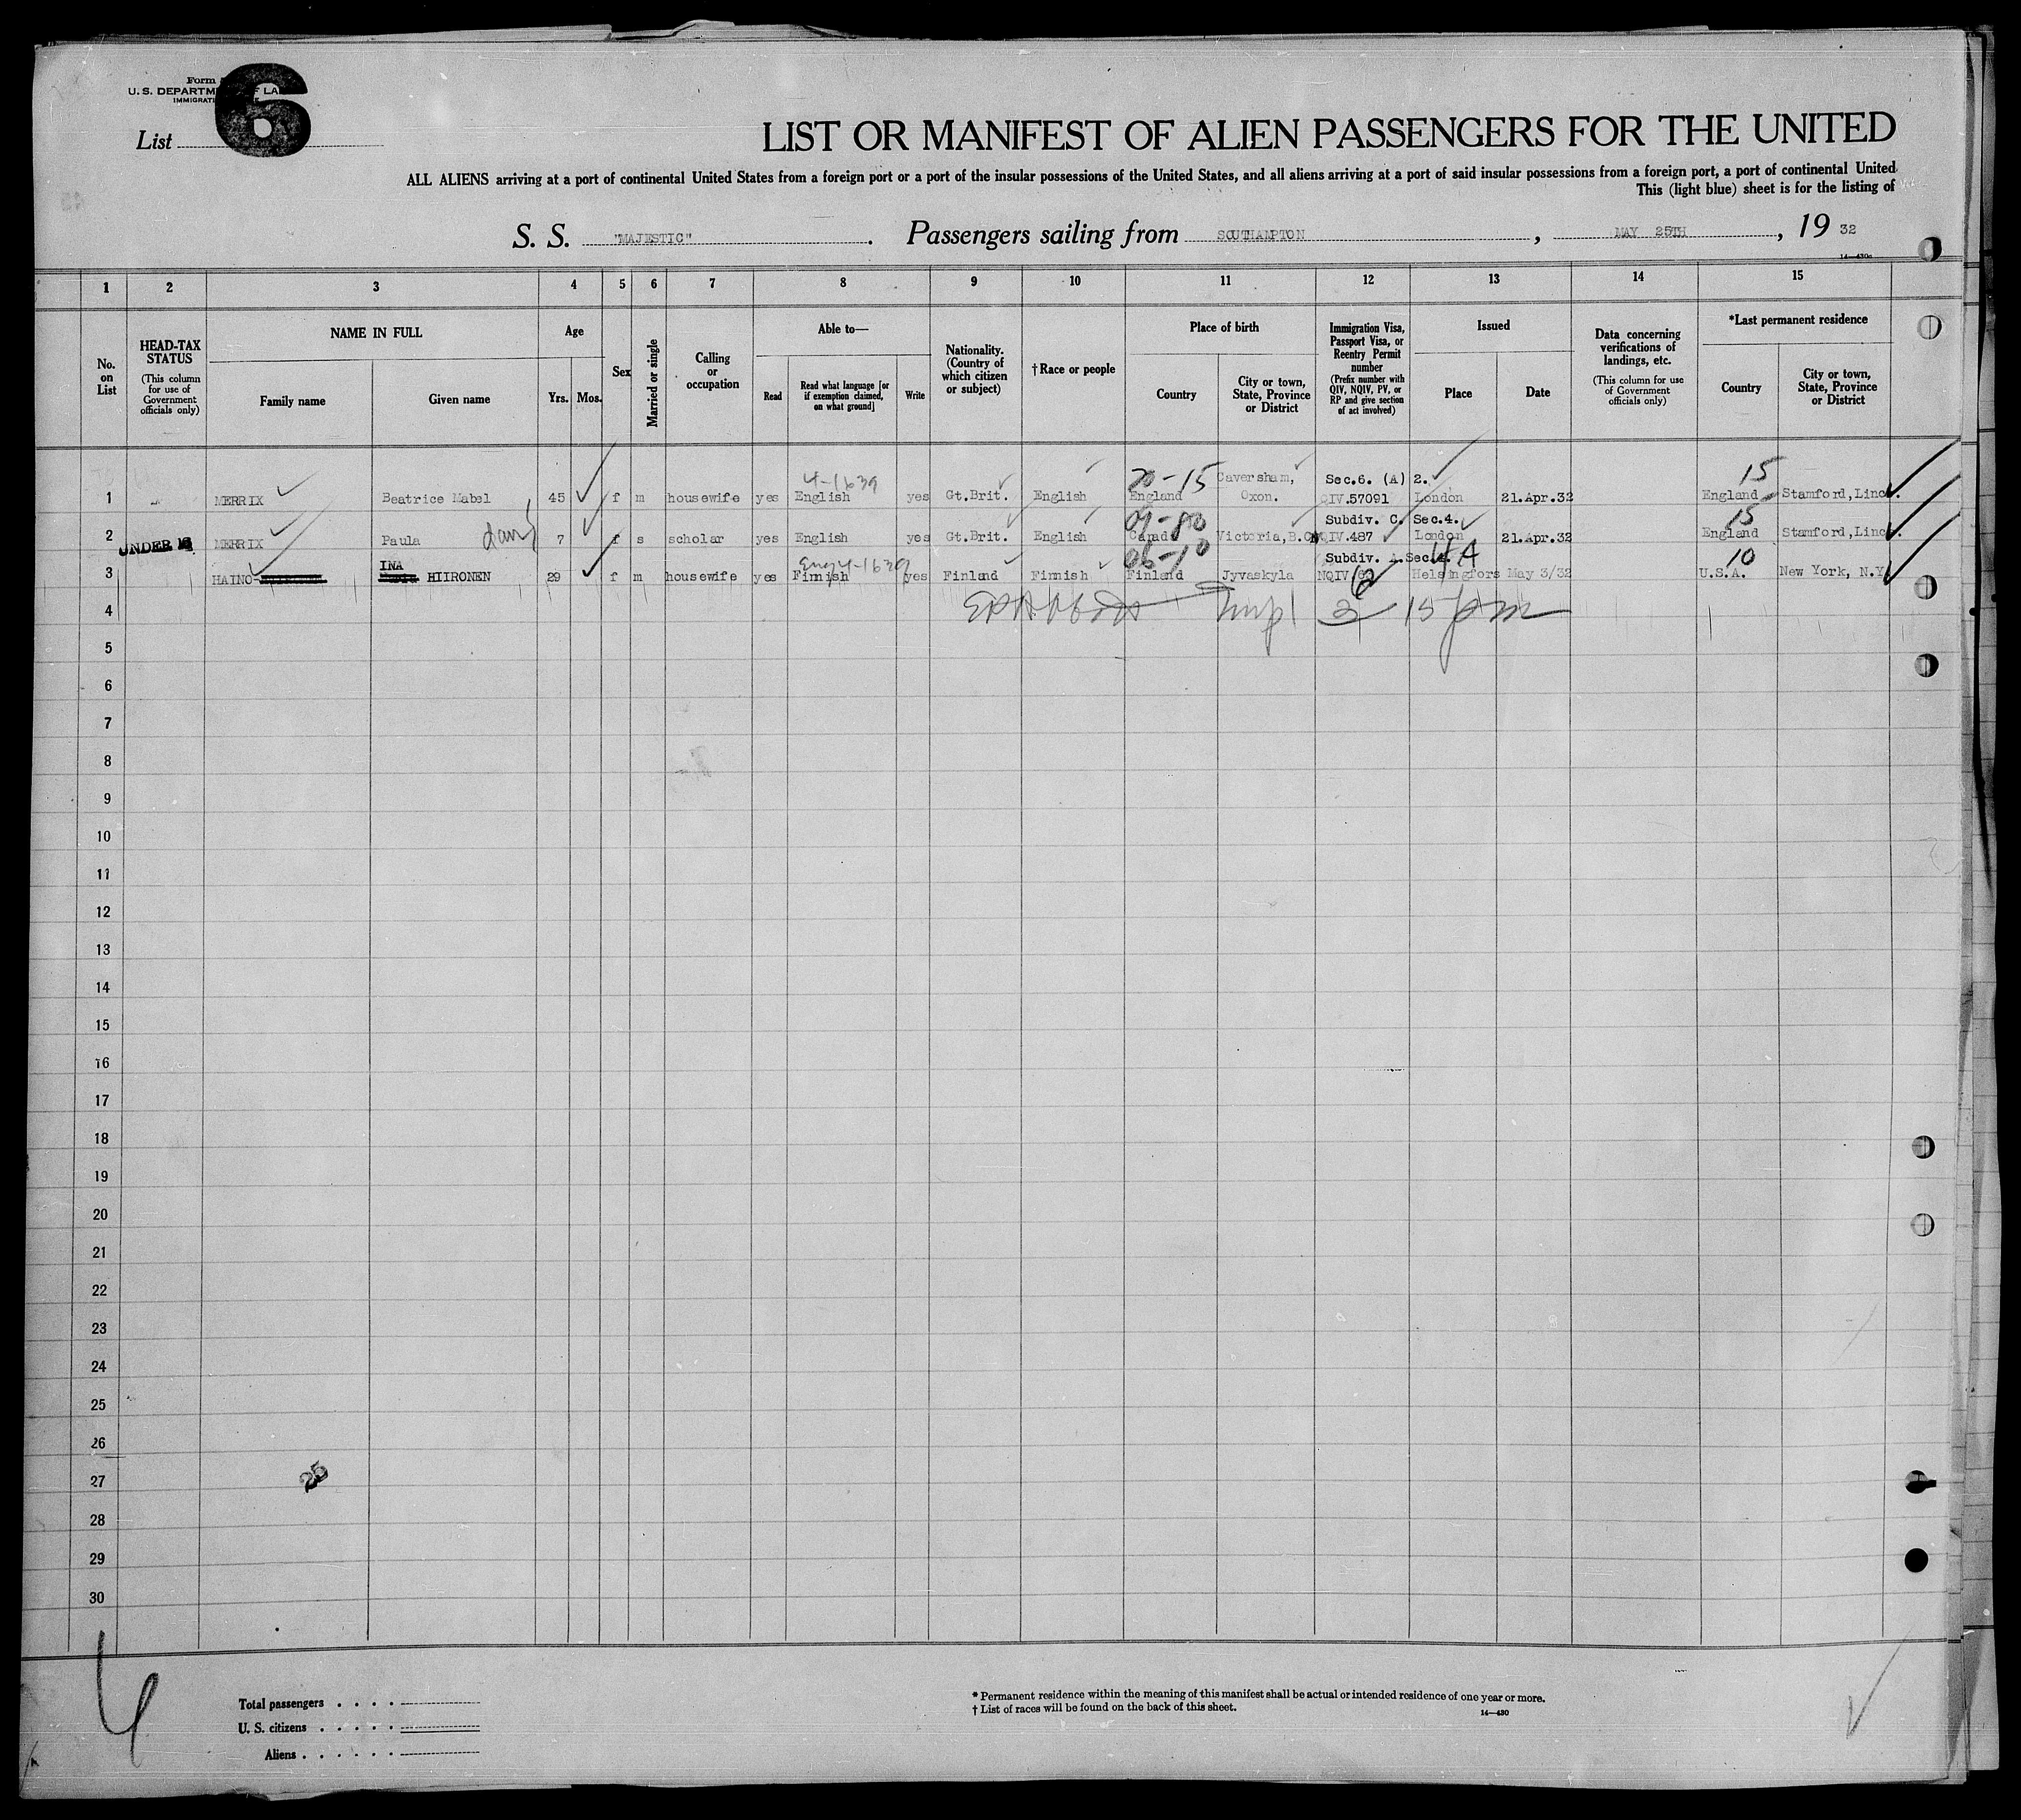 Form
U. S. DEPARTM F LA
IMMIGRATI
List 6
LIST OR MANIFEST OF ALIEN PASSENGERS FOR THE UNITED
ALL ALIENS arriving at a port of continental United States from a foreign port or a port of the insular possessions of the United States, and all aliens arriving at a port of said insular possessions from a foreign port, a port of continental United
This (light blue) sheet is for the listing of
S. S. "MAJESTIC". Passengers sailing from SOUTHAMPTON, MAY 25TH, 19 32
14—430a
1 2 3 4 5 6 7 8 9 10 11 12 13 14 15
No. on List
HEAD-TAX STATUS
(This column for use of Government officials only)
NAME IN FULL
Family name
Given name
Age
Yrs. Mos.
Sex
Married or single
Calling or occupation
Able to—
Read
Read what language [or if exemption claimed, on what ground]
Write
Nationality. (Country of which citizen or subject)
†Race or people
Place of birth
Country
City or town, State, Province or District
Immigration Visa, Passport Visa, or Reentry Permit number
(Prefix number with QIV, NQIV, PV, or RP and give section of act involved)
Issued
Place
Date
Data concerning verifications of landings, etc.
(This column for use of Government officials only)
*Last permanent residence
Country
City or town, State, Province or District
4-1639 20-15 Caversham, Sec.6. (A) 2. 15
1 MERRIX Beatrice Mabel 45 f m housewife yes English yes Gt.Brit. English England Oxon. QIV.57091 London 21.Apr.32 England Stamford,Linc.
09-80 Subdiv. C. Sec.4. 15
2 UNDER 16 MERRIX Paula 7 f s scholar yes English yes Gt.Brit. English Canada Victoria,B.C. NQIV.487 London 21.Apr.32 England Stamford,Linc.
INA Eng 4-1639 06-10 Subdiv. A.Sec. 4A 10
3 HAINO- HIIRONEN 29 f m housewife yes Finnish yes Finland Finnish Finland Jyvaskyla NQIV Helsingfors May 3/32 U.S.A. New York, N.Y.
4 Insp 3 15 pm
5
6
7
8
9
10
11
12
13
14
15
16
17
18
19
20
21
22
23
24
25
26
27 25
28
29
30
Total passengers
U. S. citizens
Aliens
* Permanent residence within the meaning of this manifest shall be actual or intended residence of one year or more.
† List of races will be found on the back of this sheet.
14—430